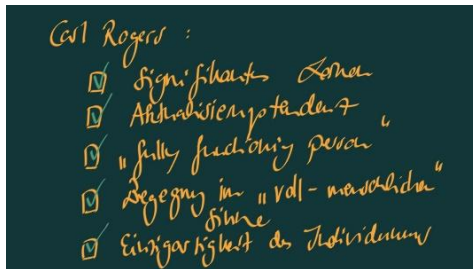 Carl Rogers :
Signifikantes Lernen
Aktualisierungstendenz
„fully functioning person“
Begegnung im „voll-menschlichen“
Sinne
Einzigartigkeit des Individuums